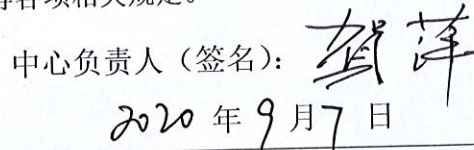 守各项相关规定。
中心负责人（签名）：贺萍
2020 年 9 月 7 日